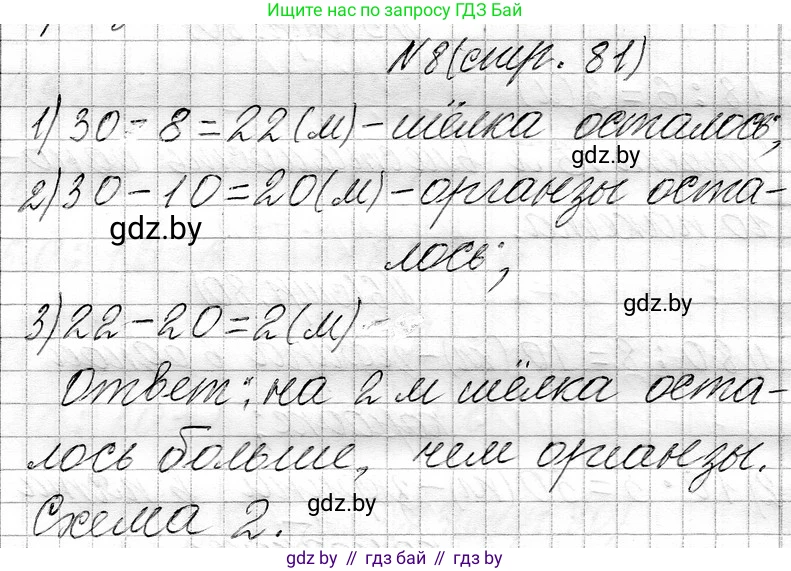 Ищите нас по запросу ГДЗ Бай
N8(стр. 81)
1) 30-8=22(м)-шёлка осталось;
gdz.by
2) 30-10=20(м)-органзы оста-
gdz.by
лось;
gdz.by
3) 22-20=2(м)-
Ответ: на 2 м шёлка оста-
лось больше, чем органзы.
Схема 2.
gdz.by
gdz.by // гдз бай // gdz.by